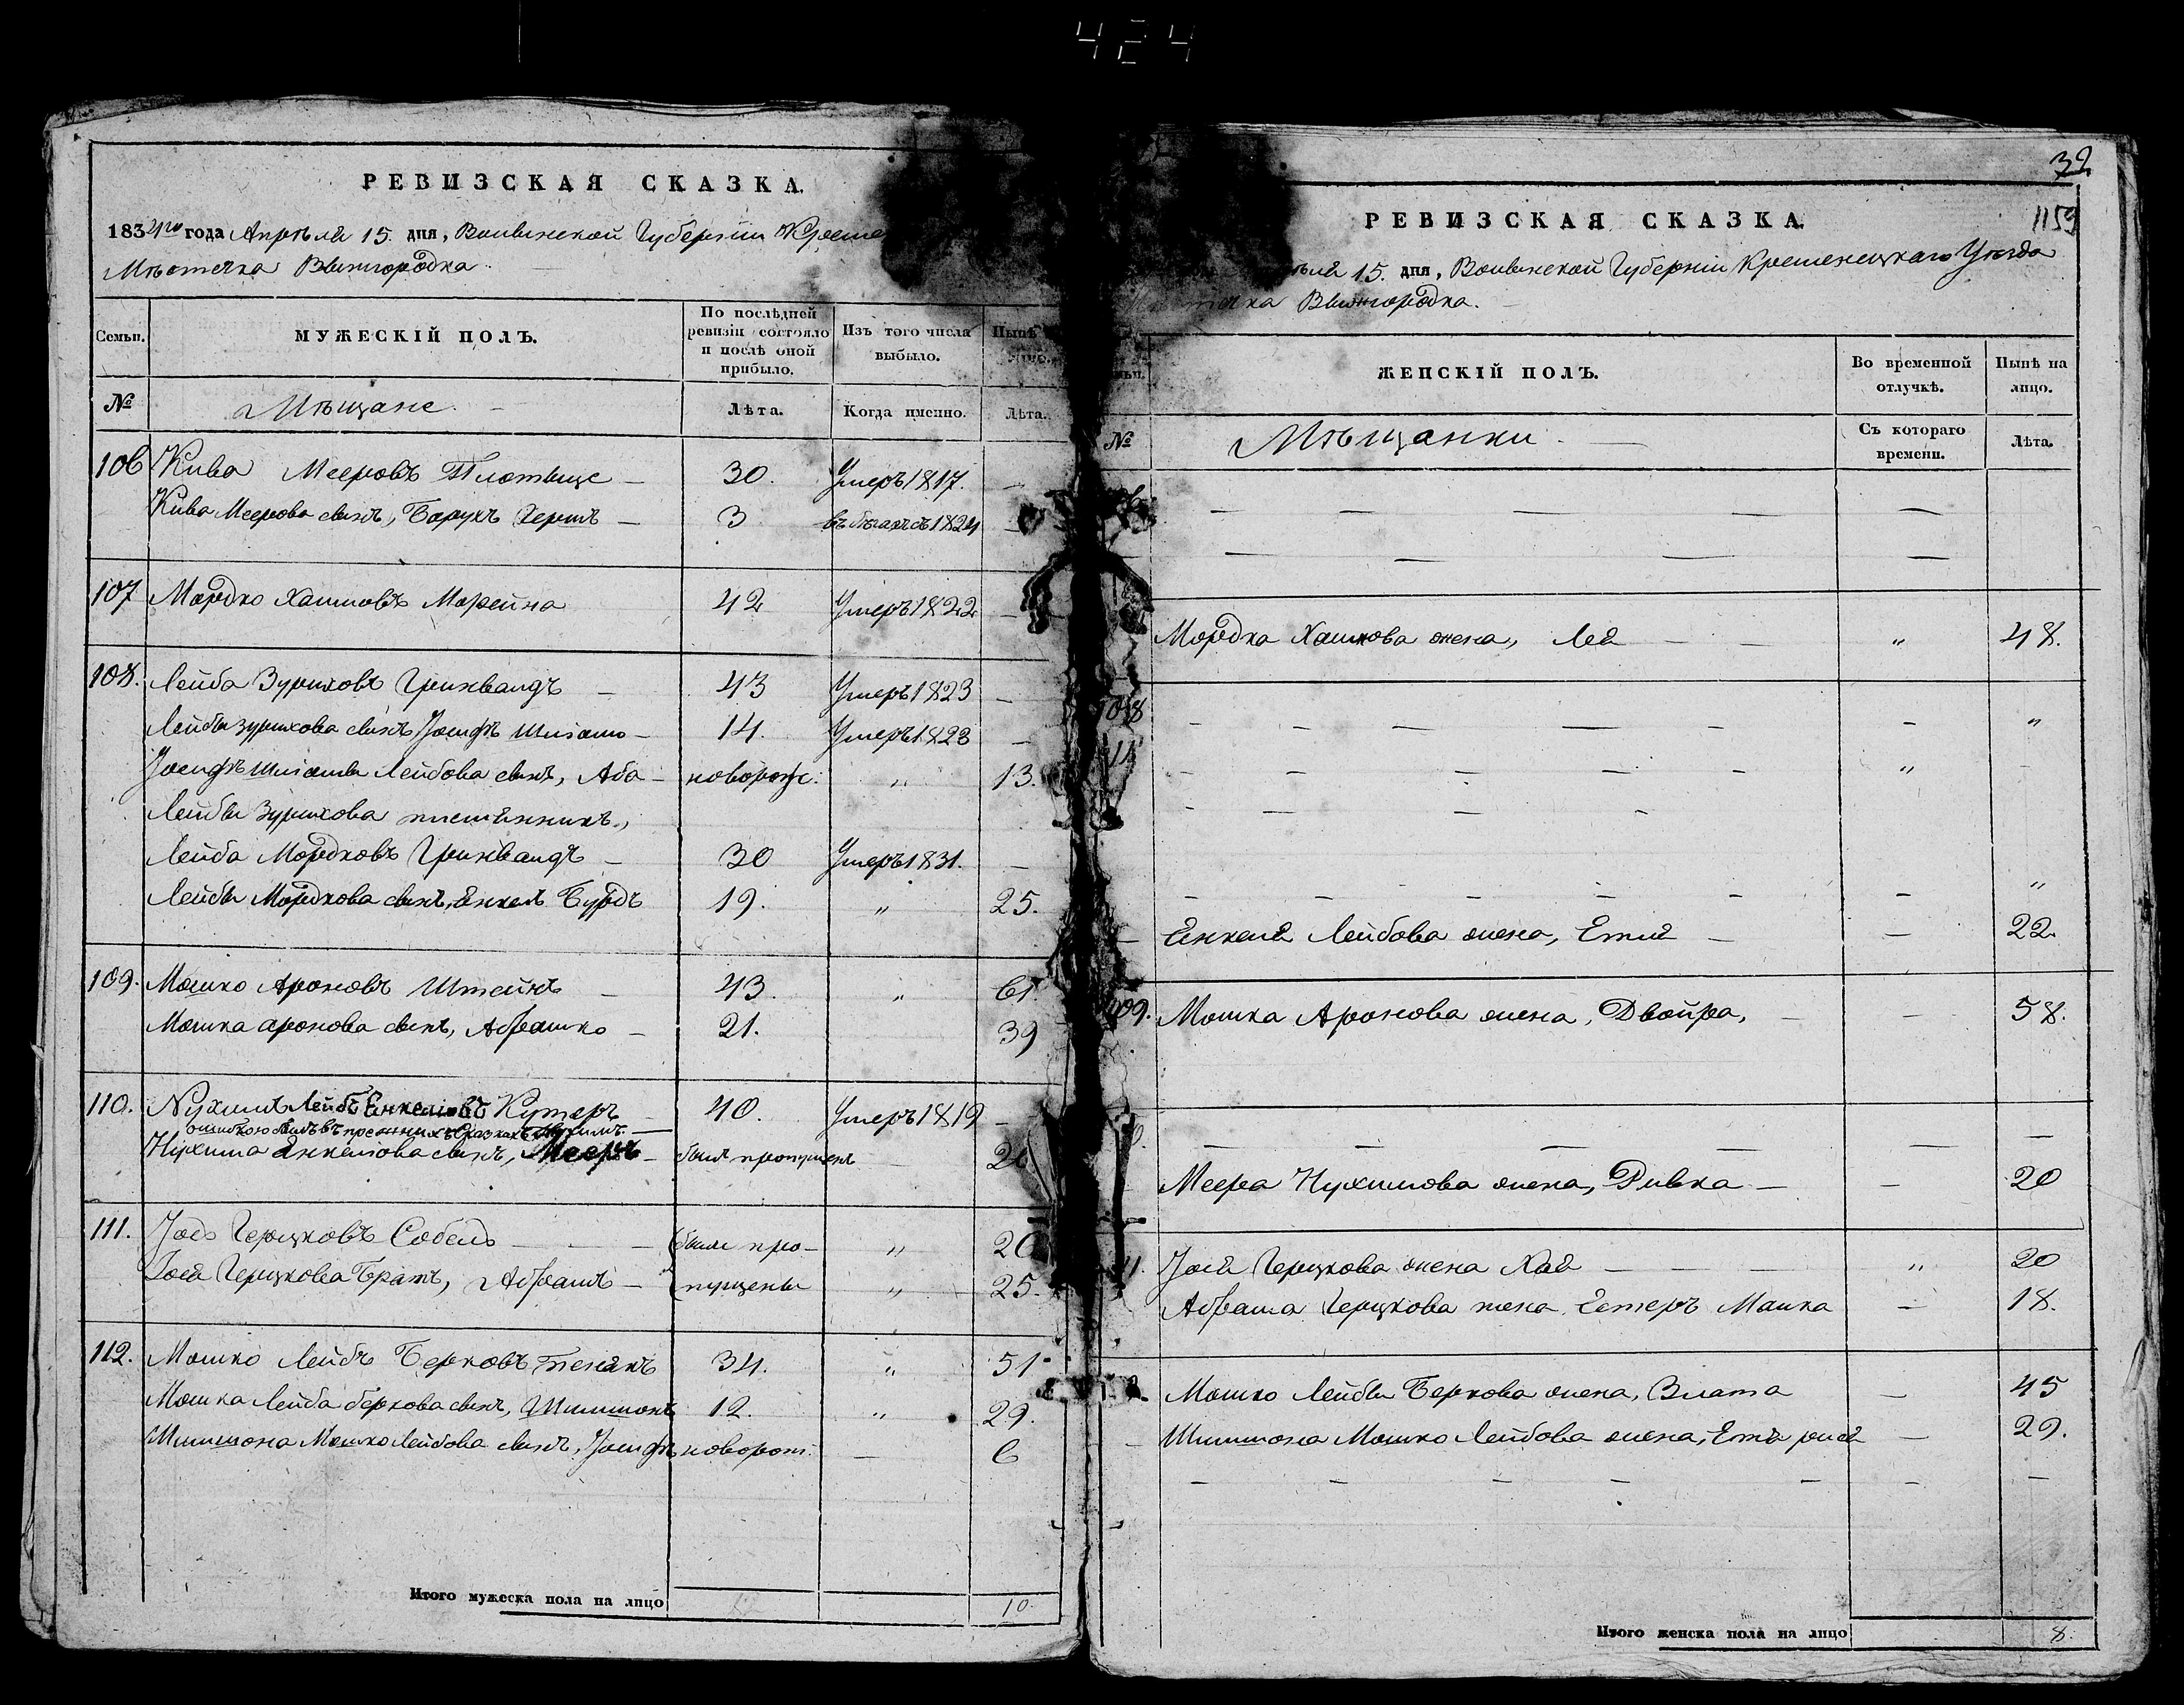 424
РЕВИЗСКАЯ СКАЗКА.
1834го года Апрѣля 15. дня, Волынской Губерніи Креме
Мѣстечка Вышгородка.
Семьи.
МУЖЕСКІЙ ПОЛЪ.
По послѣдней ревизіи состояло и послѣ оной прибыло.
Изъ того числа выбыло.
Нынѣ
№
Мѣщане.
Лѣта.
Когда именно.
Лѣта.
106 Кива Мееровъ — 30. Умеръ 1817. —
Кива Меерова сынъ, Барухъ Гершъ — 3 въ бѣгахъ съ 1824
107 Мордко Хаимовъ 42 Умеръ 1822 —
108. Лейба Зуриховъ Гринвалдъ — 43 Умеръ 1823 —
Лейбы Зурихова сынъ Іосифъ — 14. Умеръ 1823 —
Іосифъ Лейбова сынъ, Аба — новорож: „ 13.
Лейбы Зурихова племянникъ,
Лейба Мордковъ Гринвалдъ — 30 Умеръ 1831. —
Лейбы Мордкова сынъ, Янкель 19. „ 25.
109. Мошко Ароновъ Штейнъ — 43. „ 61.
Мошка Аронова сынъ, Абрашко — 21. 39
110. Нухимъ Лейбъ Янкеліовъ Кутеръ — 40. Умеръ 1819 —
ошибкою былъ въ прежнихъ Сказкахъ Нухимъ.
Нухима Янкеліова сынъ, Мееръ — былъ пропущенъ — 26
111. Іось Герцковъ Собель — (были про— „ 20
Іося Герцкова Братъ, Абрамъ — (пущены „ 25.
112. Мошко Лейбъ Берковъ 34. „ 51.
Мошка Лейба беркова сынъ, Шимшонъ 12. „ 29.
Шимшона Мошко Лейбова сынъ, Іосифъ новорож: — 6
Итого мужеска пола на лицо 10.
32
1159
РЕВИЗСКАЯ СКАЗКА.
15. дня, Волынской Губерніи Кременецкаго Уѣзда
Вышгородка.
№
ЖЕНСКІЙ ПОЛЪ.
Во временной отлучкѣ.
Нынѣ на лицо.
Мѣщанки.
Съ котораго времени.
Лѣта.
Мордка Хаимова жена, Лея — — „ 48.
108
Янкеля Лейбова жена, Етля — — 22.
109. Мошка Аронова жена, Двойра, — — 58.
Меера Нухимова жена, Ривка — — 20
Іося Герцкова жена Хая — — „ 20
Абрама Герцкова жена Естеръ Малка — 18.
Мошко Лейбы Беркова жена, Злата — 45
Шимшона Мошко Лейбова жена, — 29.
Итого женска пола на лицо 8.